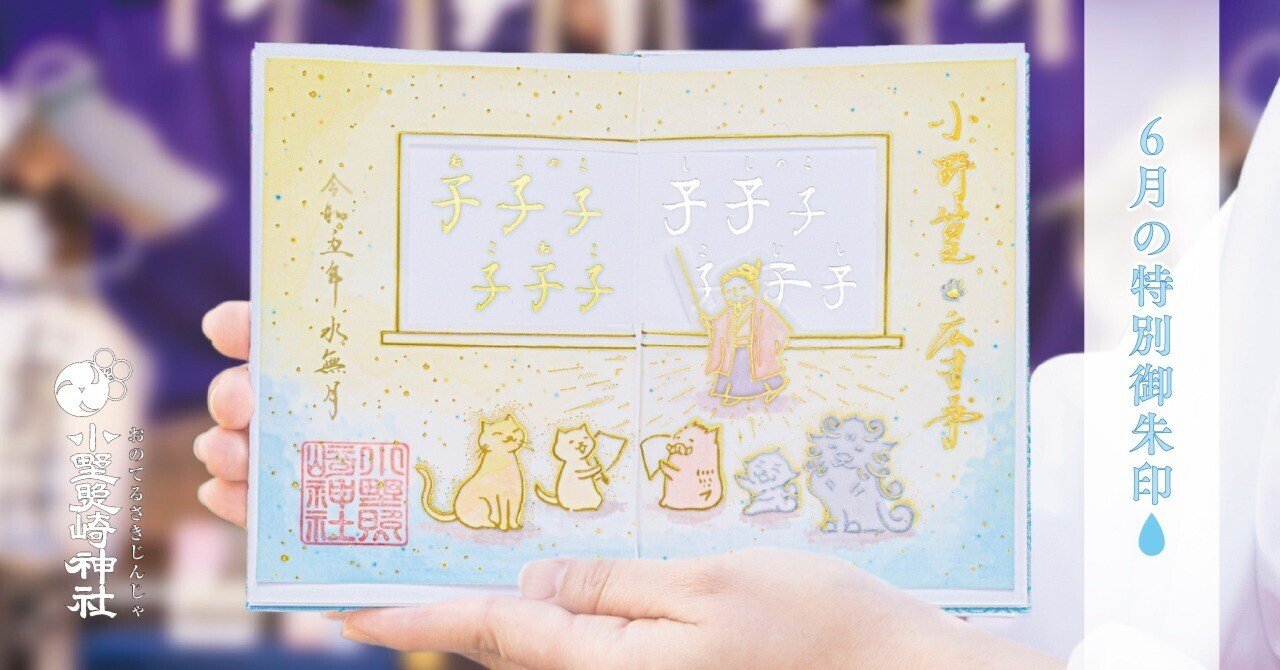 6月の特別御朱印
小野篁 広才事
ねこのこ
子子子
ししのこ
子子子
こねこ
子子子
こじし
子子子
令和五年 水無月
小野照
崎神社
おのてるさきじんじゃ
小野照崎神社